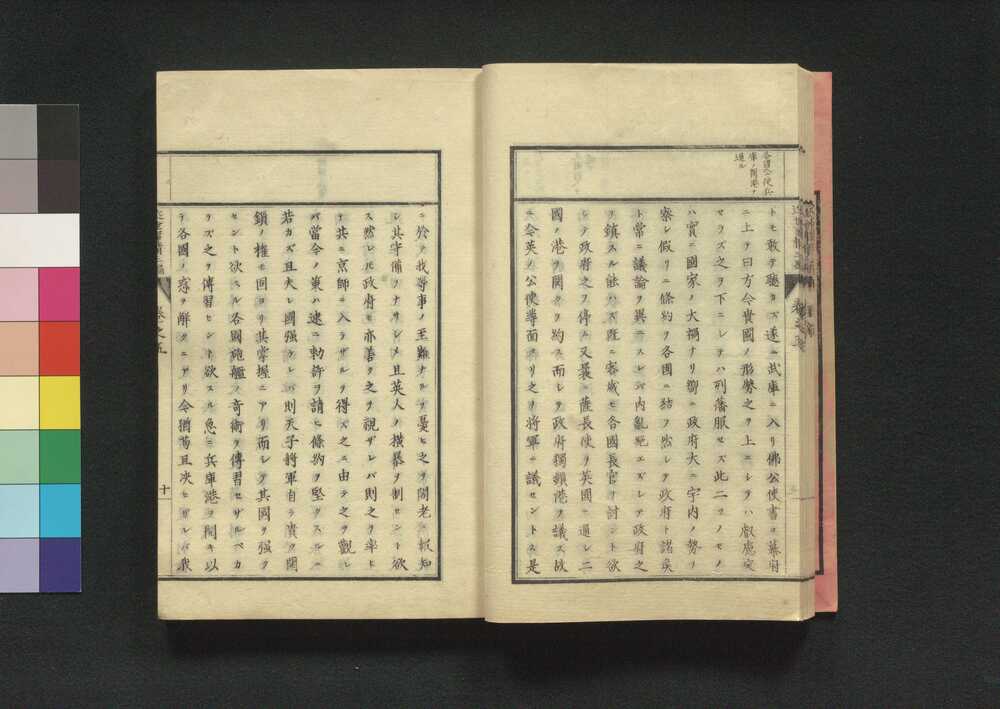 各國公使兵
庫ノ開港ヲ
逼ル
トモ敢テ聴カズ遂ニ武庫ニ入リ佛公使書ヲ幕府
ニ上テ曰方今貴國ノ形勢之ヲ上ニシテハ叡慮安
セラズ之ヲ下ニシテハ列藩服セズ此二ツノモノ
ハ實ニ國家ノ大禍ナリ嚮ニ政府大ニ宇内ノ勢ヲ
察シ假リニ條約ヲ各國ニ結フ然レモ政府ト諸矦
ト常ニ議論ヲ異ニスレバ内亂絶エズシテ政府之
ヲ鎮スル能ハズ既ニ客歳モ各國長官ヲ討ント欲
シテ政府之ヲ停ム又曩ニ薩長使ヲ英國ニ通シ二
國ノ港ヲ開クヲ約ス而シテ政府獨鎖港ヲ議ス故
ニ今英ノ公使導面ヨリ之ヲ將軍ニ議セントス是
ニ於テ我等事ノ至難ナルヲ憂ヒ之ヲ閣老ニ報知
シ其守備ヲナサシメ且英人ノ横暴ヲ制セント欲
ス然レ𪜈政府モ亦善ク之ヲ視ザレバ則之ヲ率ヒ
テ共ニ京師ニ入ラザルヲ得ズ之ニ由テ之ヲ觀レ
バ當今ノ策ハ速ニ勅許ヲ請ヒ條約ヲ堅クスルニ
若カズ且夫レ國强ケレバ則天子將軍自ラ貴ク開
鎖ノ權モ回ヨリ其掌握ニアリ而シテ其國ヲ强ク
セント欲スル各國砲艦ノ奇術ヲ傳習セザルベカ
ラズ之ヲ傳習セント欲スル急ニ兵庫港ヲ開キ以
テ各國ノ惑ヲ解クニアリ今猶苟且決セザレバ我
近世事情二編
卷之五
十